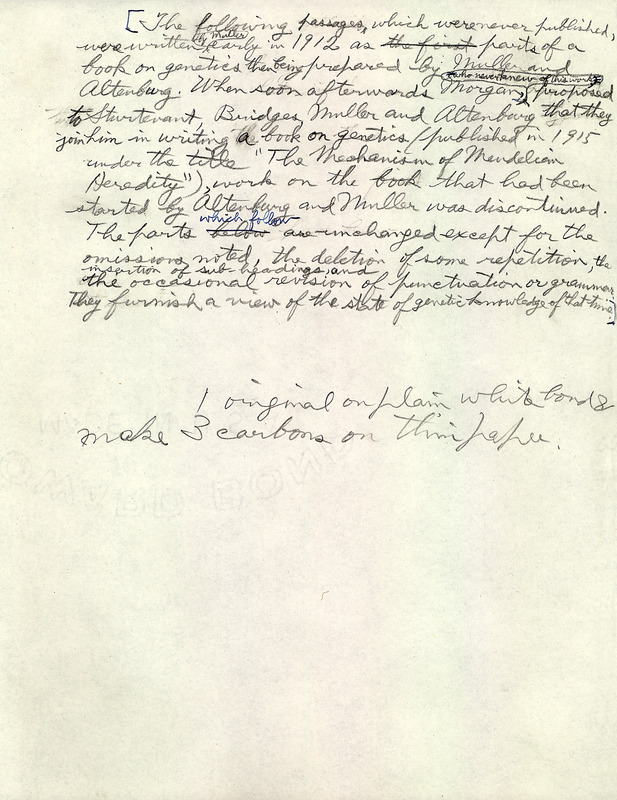 [The following passages, which were never published,
were written by Muller early in 1912 as the first parts of a
book on genetics then being prepared by Muller and
Altenburg. When soon afterwards Morgan, (who never knew of this work) proposed
to Sturtevant, Bridges, Muller and Altenburg that they
join him in writing a book on genetics (published in 1915
under the title "The Mechanism of Mendelian
Heredity"), work on the book that had been
started by Altenburg and Muller was discontinued.
which follow
The parts below are unchanged except for the
omissions noted, the deletion of some repetition, the
insertion of sub-headings, and
the occasional revision of punctuation or grammar.
They furnish a view of the state of genetic knowledge of that time.]
1 original on plain white bond &
make 3 carbons on thin paper.